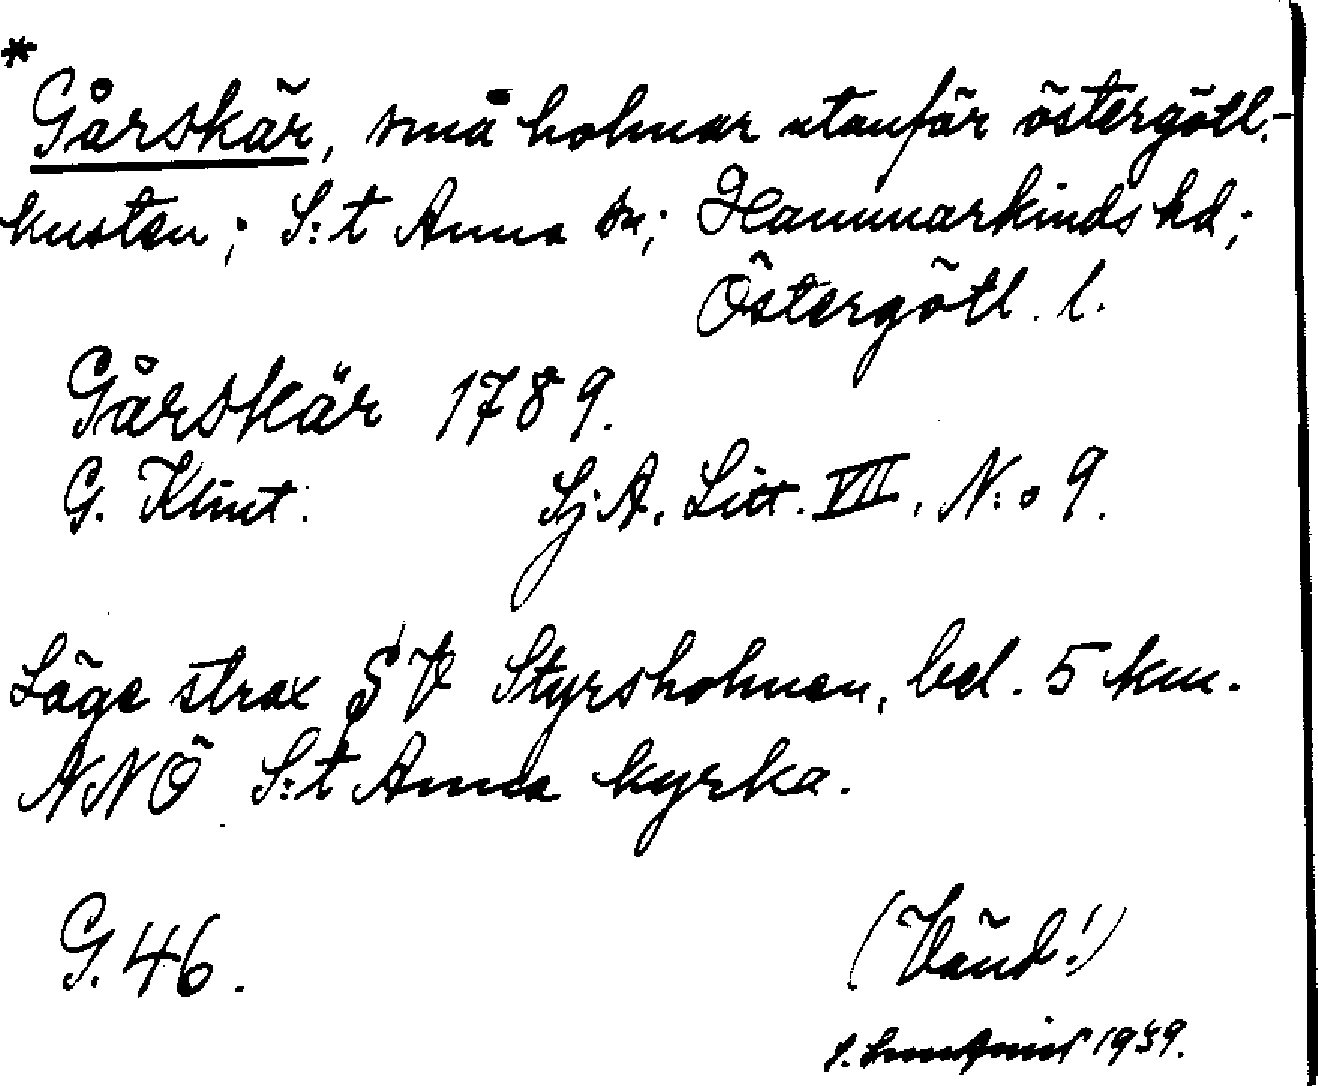 *
Gårskär, små holmar utanför östergötl.-
kusten; S:t Anna sn; Hammarkinds hd;
Östergötl. l.
Gårskär 1789.
G. Klint. Sj A. Litt. VII, N:o 9.
Läge strax SV Styrsholmen, bel. 5 km.
NNÖ S:t Anna kyrka.
G. 46. (Vänd!)
1939.